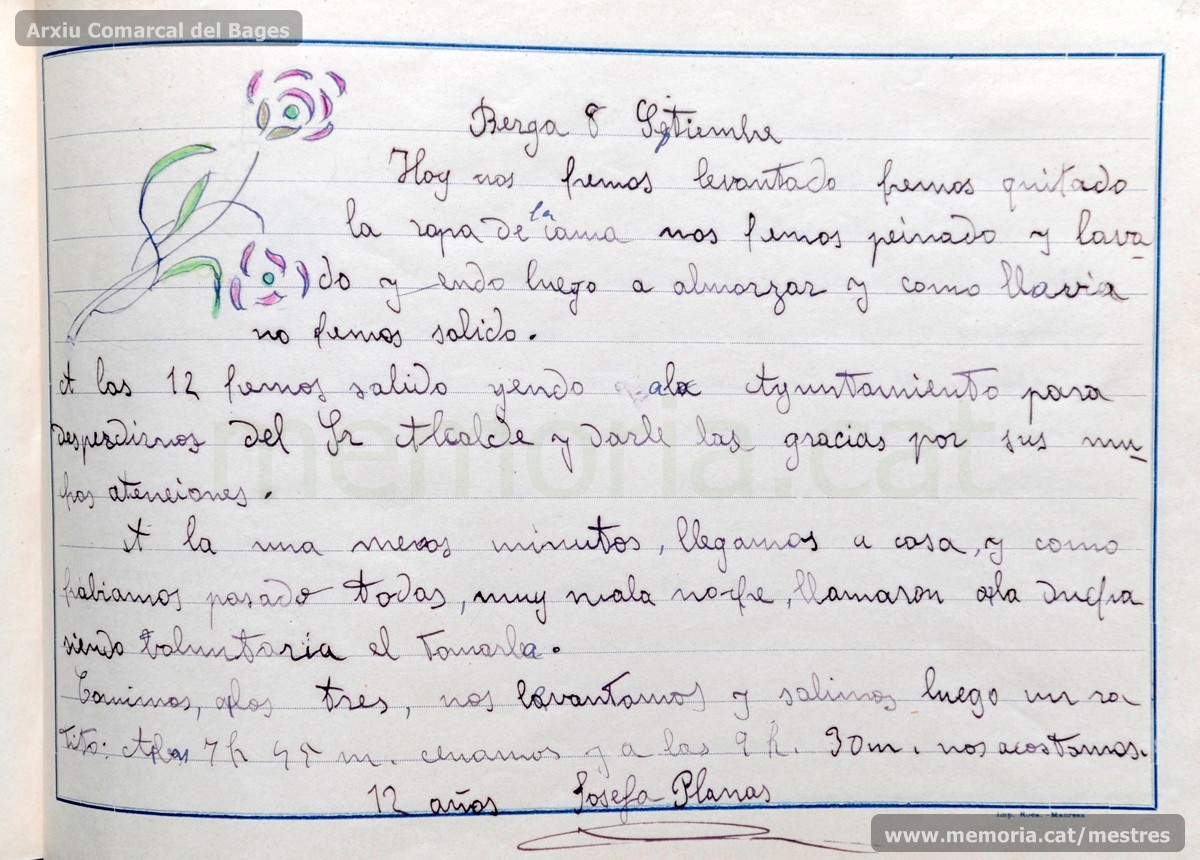 Arxiu Comarcal del Bages
Berga 8 Septiembre
Hoy nos hemos levantado hemos quitado
la ropa de la cama nos hemos peinado y lava-
do y endo luego a almorzar y como llavia
no hemos salido.
A las 12 hemos salido yendo ala Ayuntamiento para
despedirnos del Sr Alcalde y darle las gracias por sus mu-
has atenciones.
A la una menos minutos, llegamos a casa, y como
habiamos pasado todas, muy mala noche, llamaron a la ducha
siendo voluntaria el tomarla.
Comimos, a los tres, nos levantamos y salimos luego un ra
tito. A las 7 h 45 m. cenamos y a las 9 h. 30 m. nos acostamos.
12 años Josefa Planas
memoria.cat
Imp. Roca. - Manresa
www.memoria.cat/mestres